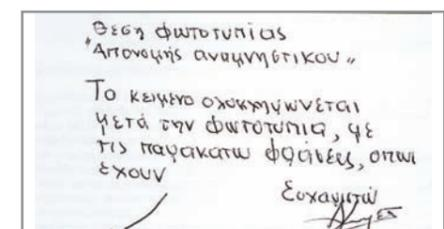 Θεση φωτοτυπίας
"Απονομής αναμνηστικου"
Το κειμενο ολοκληρώνεται
μετά την φωτοτυπια, με
τις παρακατω φράσεις, οπως
έχουν
Ευχαριστώ